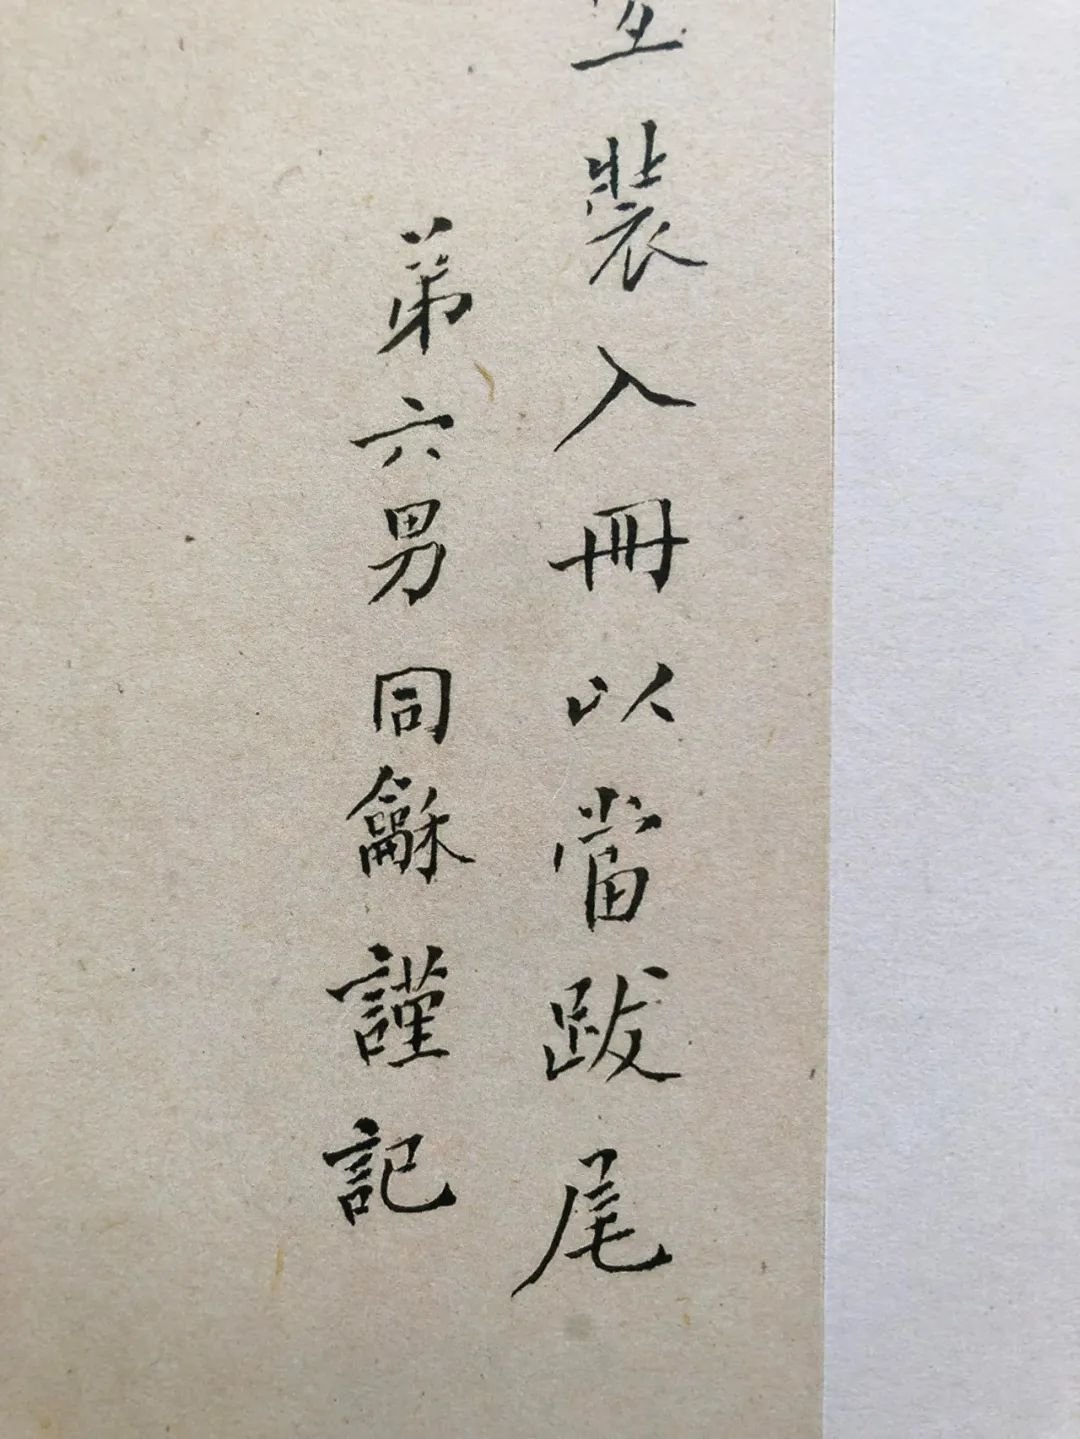 裝入冊以當跋尾
第六男同龢謹記